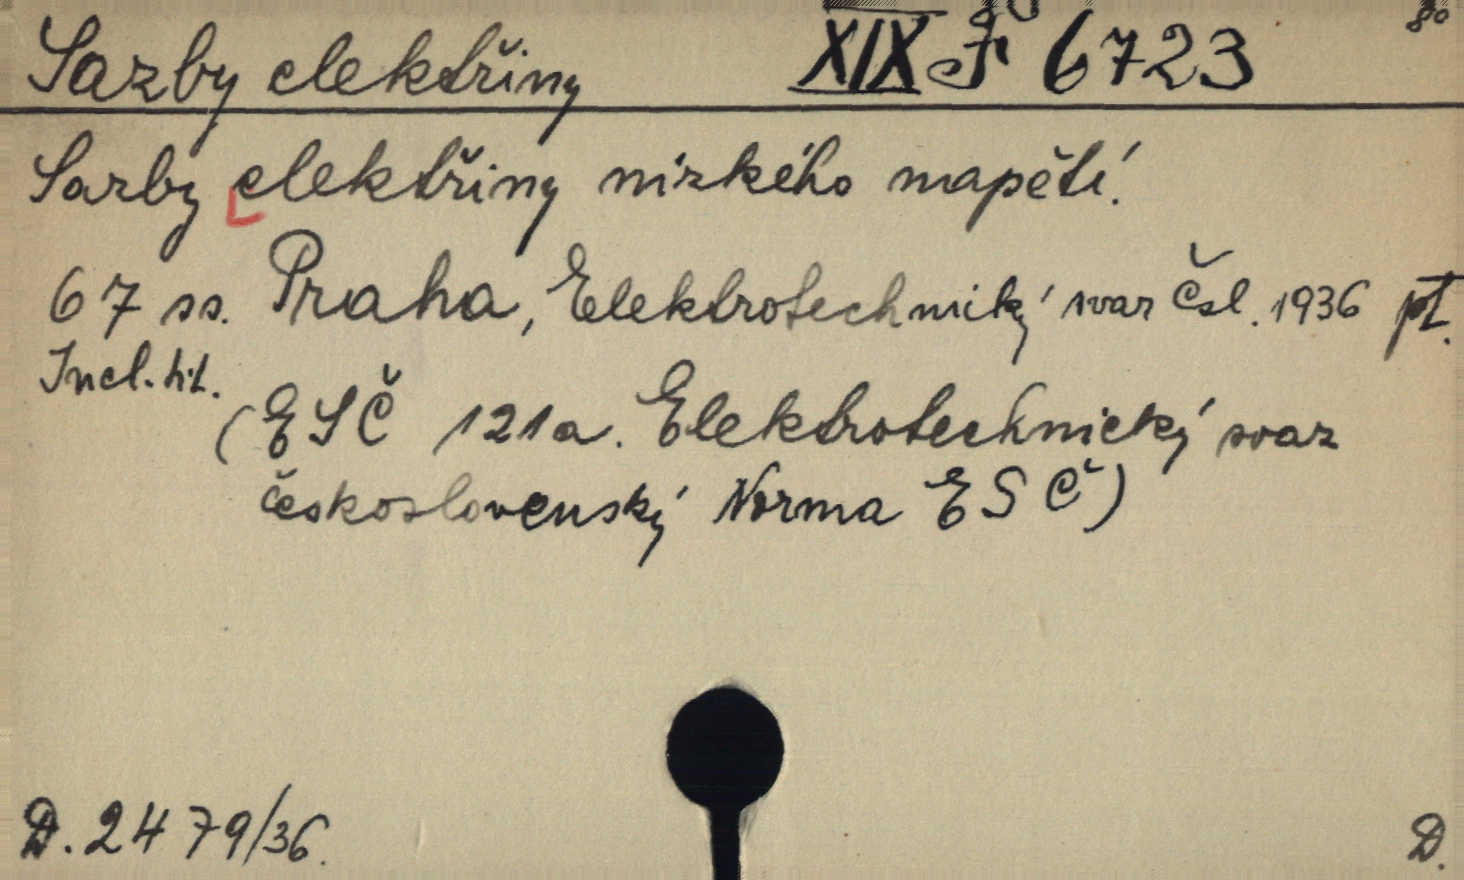 Sazby elektřiny XIX F 6723 8°
Sazby elektřiny nízkého napětí.
67 ss. Praha, Elektrotechnický svaz Čsl. 1936 pt.
Incl. tit.
(ESČ 121a. Elektrotechnický svaz
československý Norma ESČ)
D. 2479/36. D.